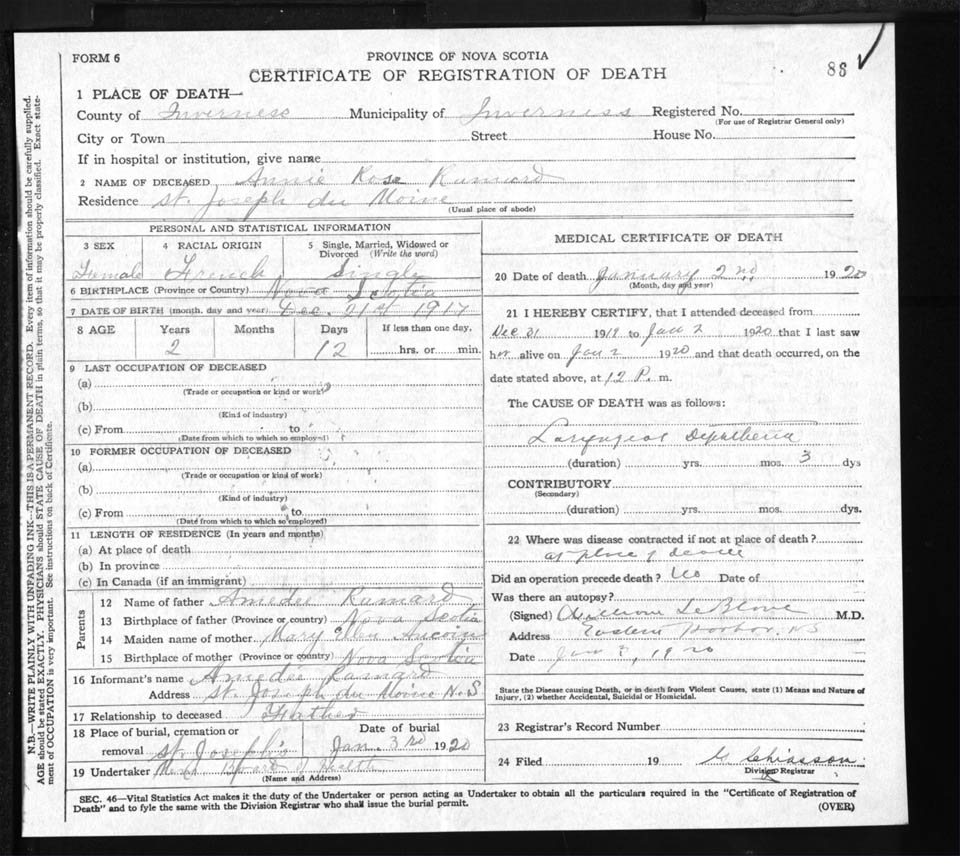 FORM 6
PROVINCE OF NOVA SCOTIA
CERTIFICATE OF REGISTRATION OF DEATH
88
1 PLACE OF DEATH—
County of Inverness Municipality of Inverness Registered No.
(For use of Registrar General only)
City or Town Street House No.
If in hospital or institution, give name
2 NAME OF DECEASED Annie Rose
Residence St. Joseph du Moine
(Usual place of abode)
PERSONAL AND STATISTICAL INFORMATION
3 SEX 4 RACIAL ORIGIN 5 Single, Married, Widowed or Divorced (Write the word)
Female French Single
6 BIRTHPLACE (Province or Country) Nova Scotia
7 DATE OF BIRTH (month, day and year) Dec. 21st 1917
8 AGE Years Months Days If less than one day,
2 12 hrs. or min.
9 LAST OCCUPATION OF DECEASED
(a)
(Trade or occupation or kind or work)
(b)
(Kind of industry)
(c) From to
(Date from which to which so employed)
10 FORMER OCCUPATION OF DECEASED
(a)
(Trade or occupation or kind of work)
(b)
(Kind of industry)
(c) From to
(Date from which to which so employed)
11 LENGTH OF RESIDENCE (In years and months)
(a) At place of death
(b) In province
(c) In Canada (if an immigrant)
Parents
12 Name of father Amedée
13 Birthplace of father (Province or country) Nova Scotia
14 Maiden name of mother Mary Ellen Aucoin
15 Birthplace of mother (Province or country) Nova Scotia
16 Informant's name Amedée
Address St. Joseph du Moine N.S
17 Relationship to deceased Father
18 Place of burial, cremation or removal St. Joseph's
Date of burial Jan. 3rd 1920
19 Undertaker Board of Health
(Name and Address)
MEDICAL CERTIFICATE OF DEATH
20 Date of death January 2nd 1920
(Month, day and year)
21 I HEREBY CERTIFY, that I attended deceased from
Dec 31 1919 to Jan 2 1920 that I last saw
her alive on Jan 2 1920 and that death occurred, on the
date stated above, at 12 P. m.
The CAUSE OF DEATH was as follows:
Laryngeal Diphtheria
(duration) yrs. mos. 3 dys
CONTRIBUTORY
(Secondary)
(duration) yrs. mos. dys.
22 Where was disease contracted if not at place of death?
at place of death
Did an operation precede death? No Date of
Was there an autopsy?
(Signed) LeBlanc M.D.
Address Eastern Harbor, N.S
Date Jan 3, 1920
State the Disease causing Death, or in death from Violent Causes, state (1) Means and Nature of
Injury, (2) whether Accidental, Suicidal or Homicidal.
23 Registrar's Record Number
24 Filed 19 Chiasson
Division Registrar
SEC. 46—Vital Statistics Act makes it the duty of the Undertaker or person acting as Undertaker to obtain all the particulars required in the "Certificate of Registration of
Death" and to fyle the same with the Division Registrar who shall issue the burial permit.
(OVER)
N.B.—WRITE PLAINLY WITH UNFADING INK—THIS IS A PERMANENT RECORD. Every item of information should be carefully supplied.
AGE should be stated EXACTLY. PHYSICIANS should STATE CAUSE OF DEATH in plain terms, so that it may be properly classified. Exact state-
ment of OCCUPATION is very important. See instructions on back of Certificate.